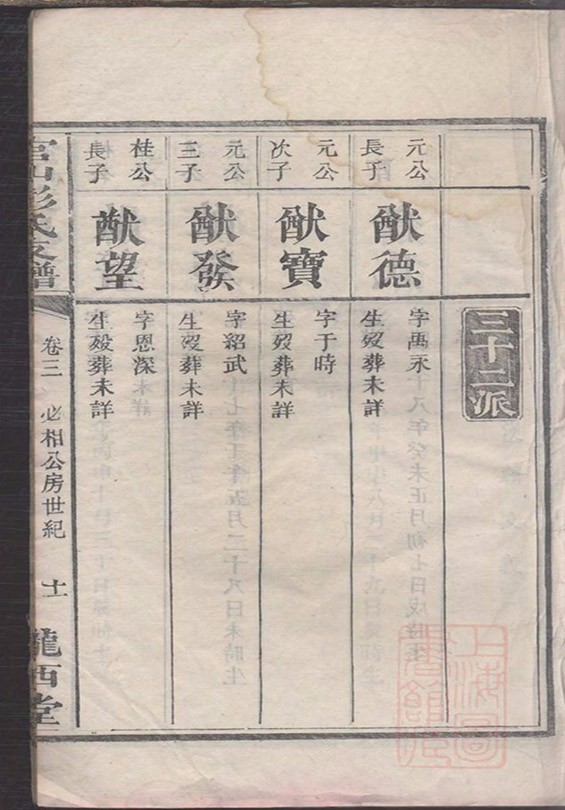 三十二派
元公
長子
猷德
字萬永
生歿葬未詳
元公
次子
猷寶
字于時
生歿葬未詳
元公
三子
猷發
字紹武
生歿葬未詳
桂公
長子
猷望
字恩深
生歿葬未詳
彭氏支譜
卷三
必相公房世紀
十一
隴西堂
上海圖